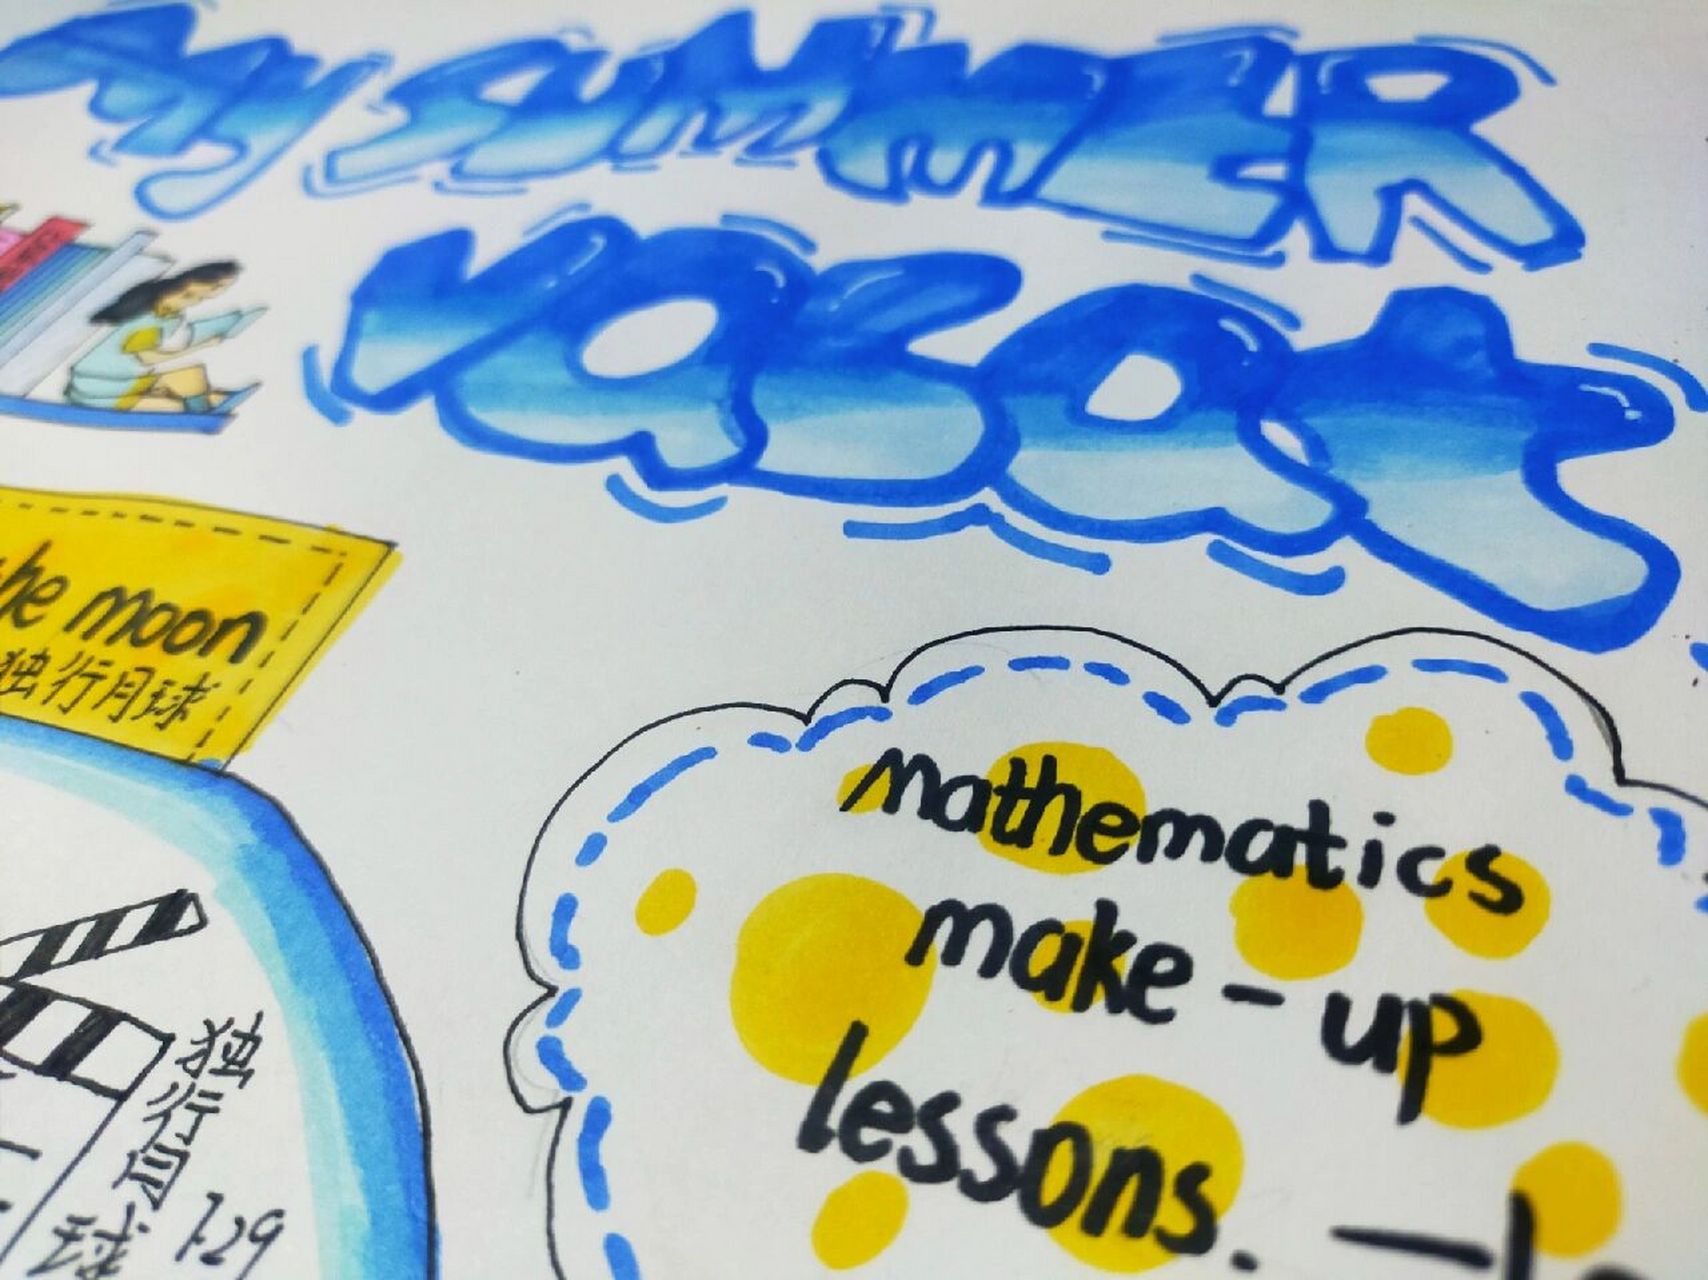 My SUMMER
VaCat
he moon
独行月球
mathematics
make-up
lessons.
独行月球
7.29